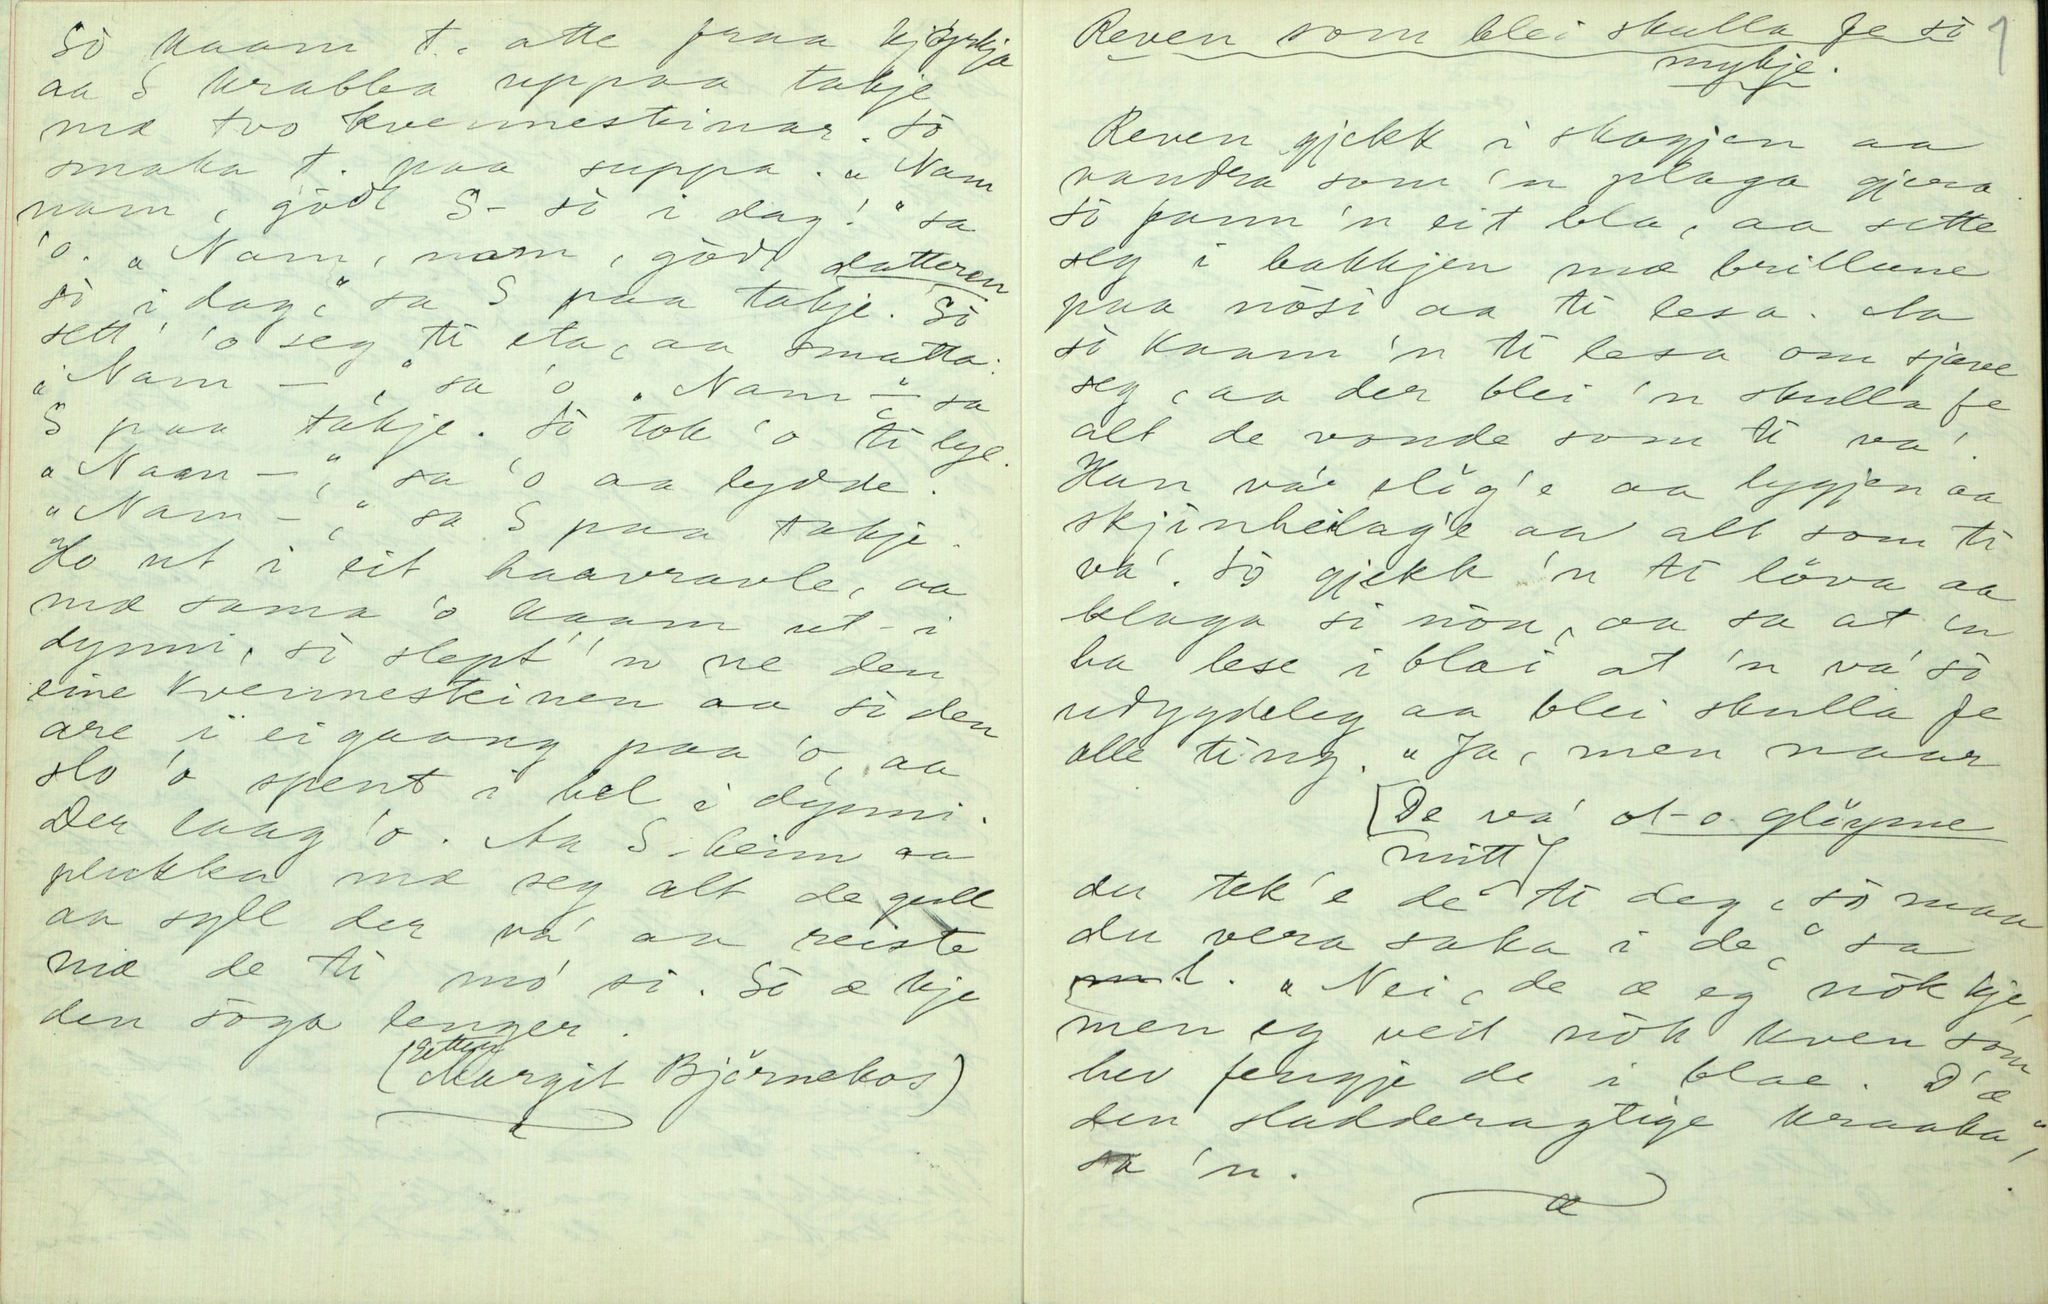 Sò kaam t. atte fraa kjörkja
aa S krabba uppaa takje
mæ tvo kvennesteinar. Sò
smaka t. paa suppa. „Nam
nam, godt S- sò i dag!" sa
'o. „Nam, nam, godt datteren
sò i dag," sa S paa takje. Sò
sett' 'o seg ti eta, aa smatta:
„Nam —," sa 'o „Nam —" sa
S paa takje. Sò tok 'o ti lye.
„Nam —," sa 'o aa lydde.
„Nam —," sa S paa takje.
Ho ut i eit haavravle, aa
mæ sama 'o kaam ut- i
dynni, sò slept' 'n ne den
eine kvennesteinen aa sò den
are i ei gaang paa 'o, aa
slo 'o spent i hel i dynni.
Der laag 'o. Aa S. heim aa
plukka mæ seg alt de gull
aa syll der va' aa reiste
mæ de ti mo' si. Sò æ kje
den soga lenger.
(Etter Margit Björnekos)
1
Reven som blei skulla fe sò
mykje.
Reven gjekk i skogjen aa
vandra som 'n plaga gjera.
Sò fann 'n eit bla, aa sette
seg i bakkjen mæ brillune
paa nosi aa ti lesa. Aa
sò kaam 'n ti lesa om sjave
seg, aa der blei 'n skulla fe
alt de vonde som ti va'.
Han va' slög'e aa lygjen aa
skjinheilag'e aa alt som ti
va'. Sò gjekk 'n ti löva aa
klaga si nou, aa sa at 'n
ha lese i blai at 'n va' sò
udygdeleg aa blei skulla fe
alle ting. „Ja, men naar
[De va' ot-o glöyme
mitt]
du tek 'e de ti deg, sò maa
du vera saka i de," sa
l. „Nei, de æ eg nok kje,
men eg veit nok kven som
hev fengje de i blae. D'æ
den sladderagtige kraaka",
sa 'n.